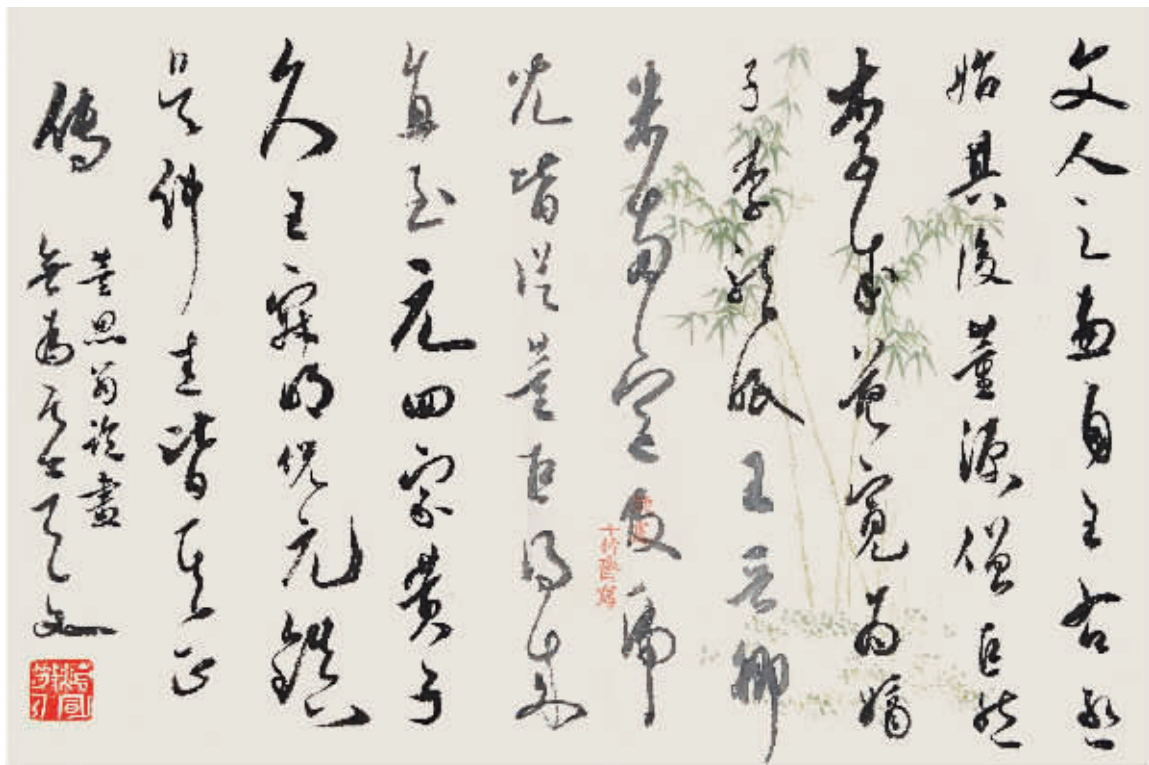 文人之畫自王右丞
始其後董源僧巨然
李成范寬為嫡
子李龍眠王晉卿
米南宮及虎
兒皆從董巨得來
直至元四家黃子
久王叔明倪元鎮
吳仲圭皆其正
傳
董思翁論畫
無為居士文
十竹齋寫